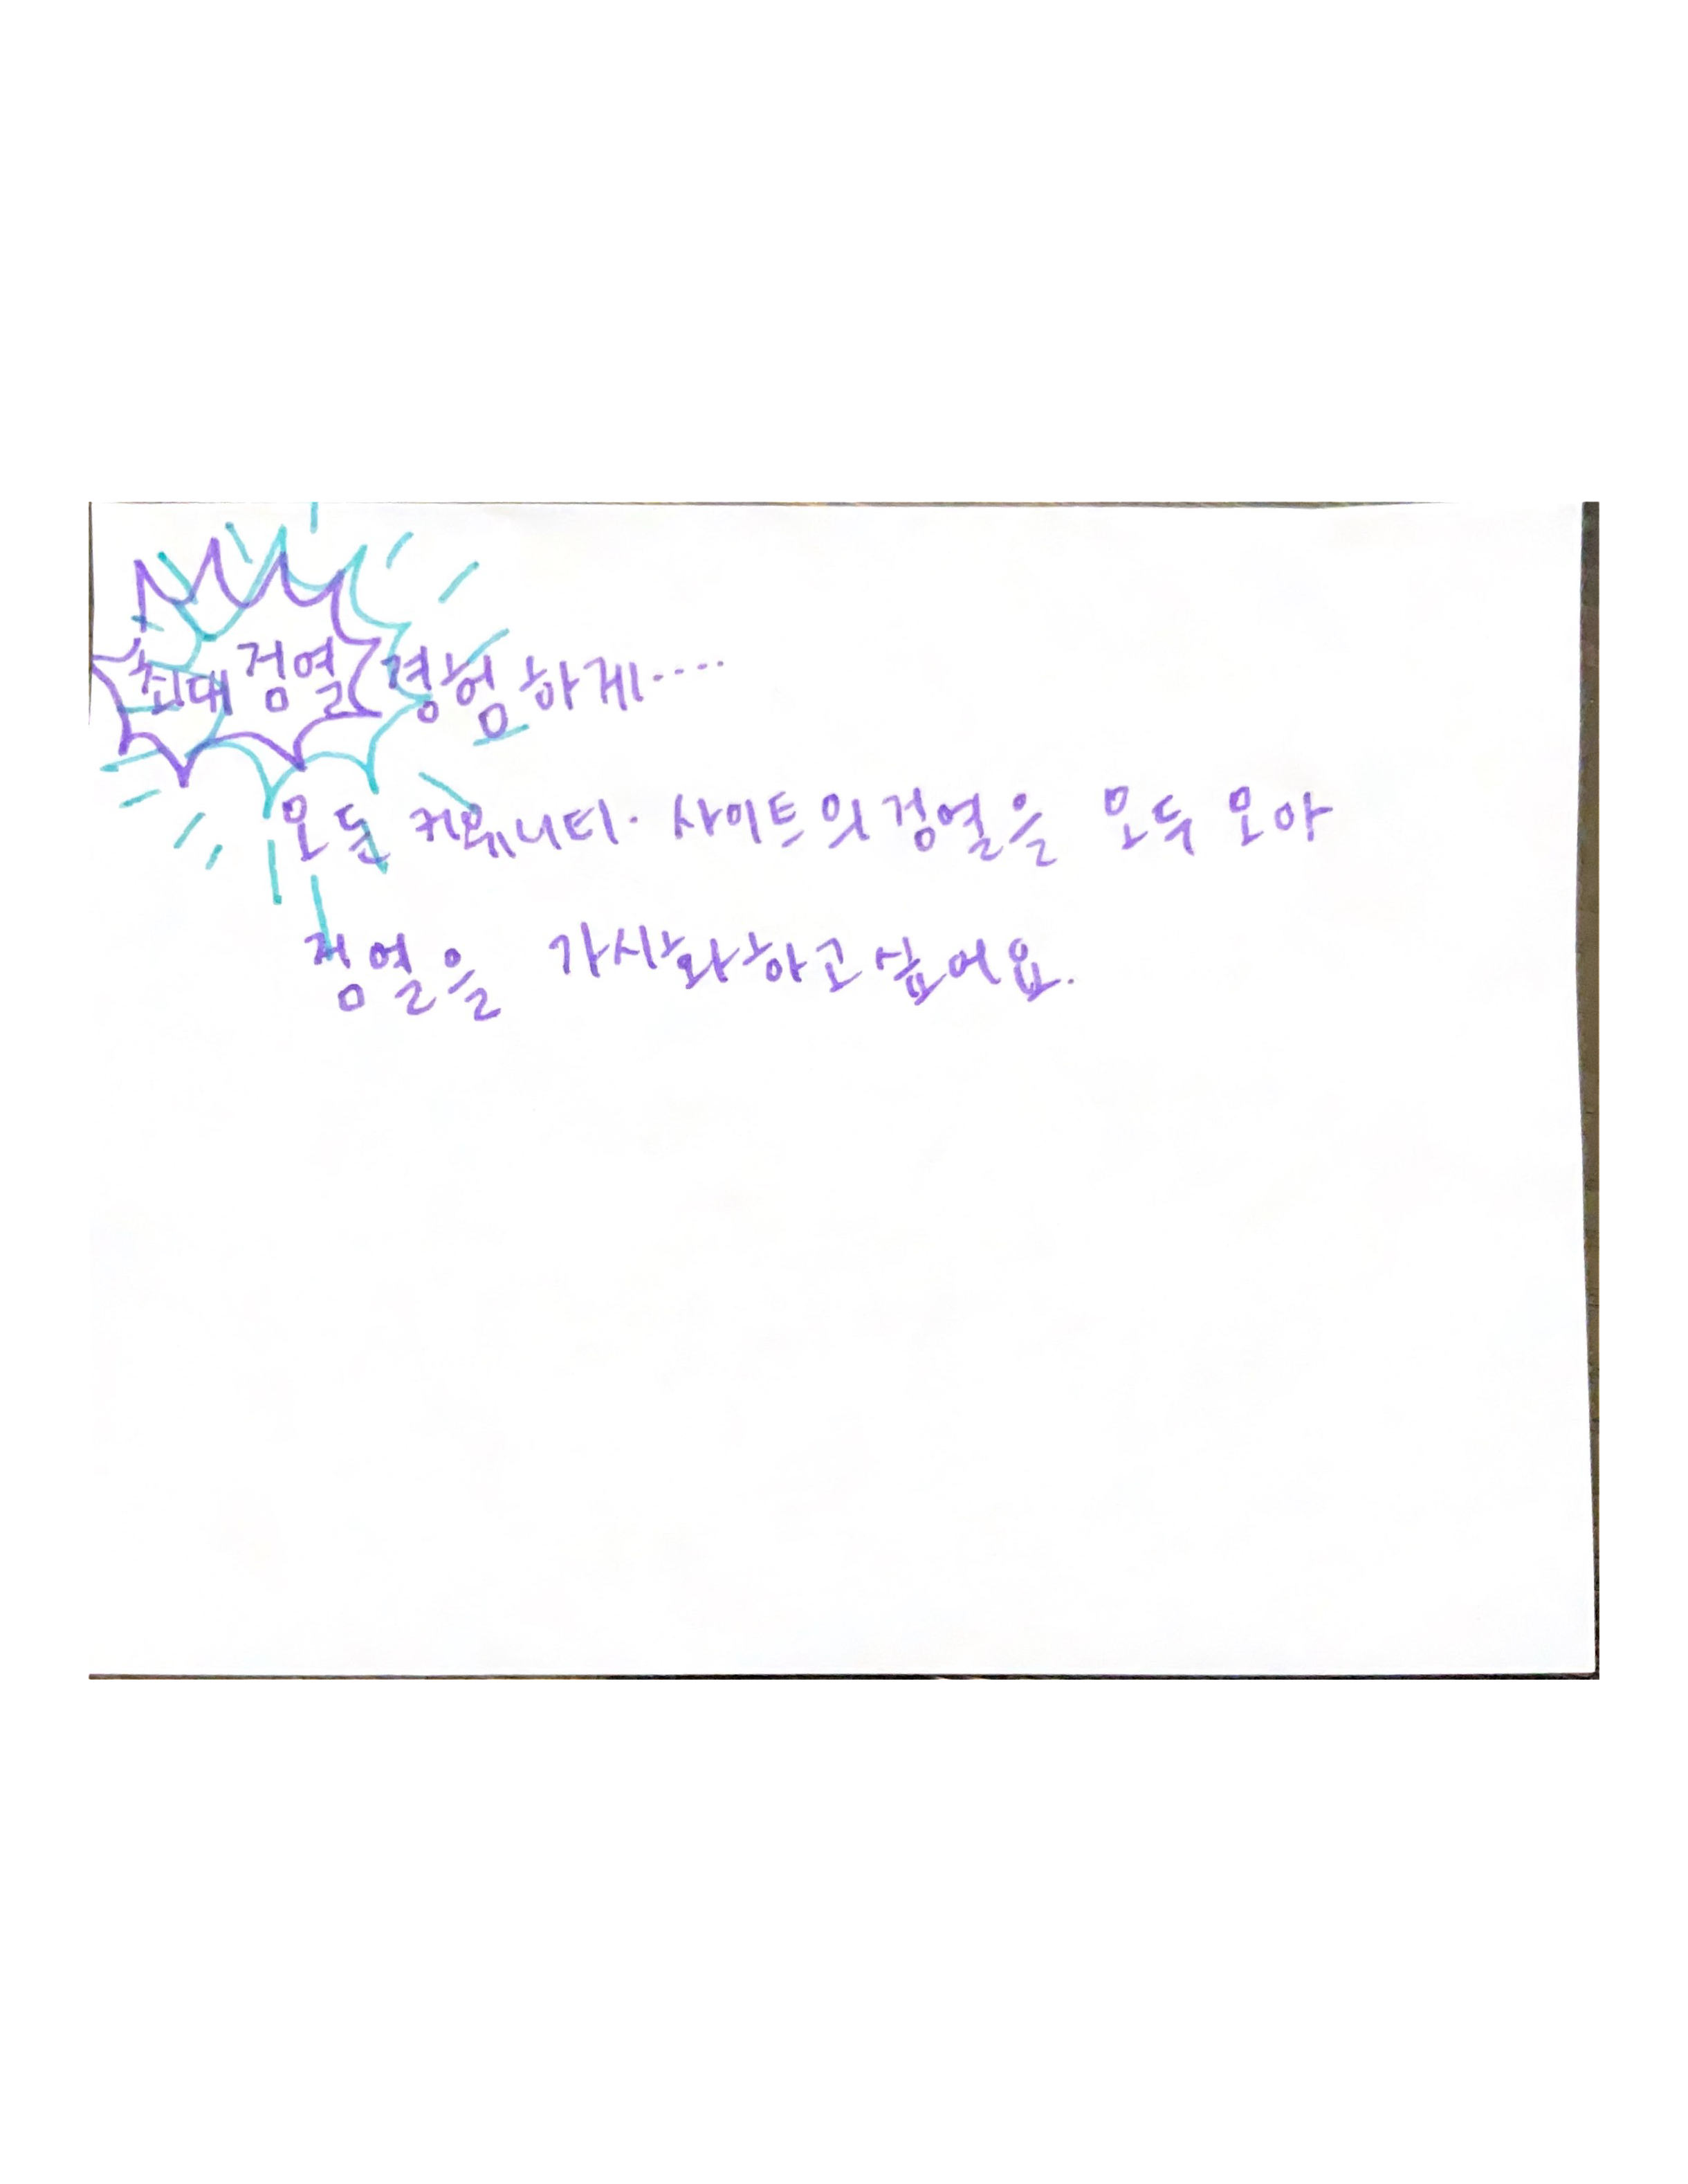 최대 검열 경험하게....
모든 커뮤니티. 사이트의 검열을 모두 모아
검열을 가시화하고 싶어요.